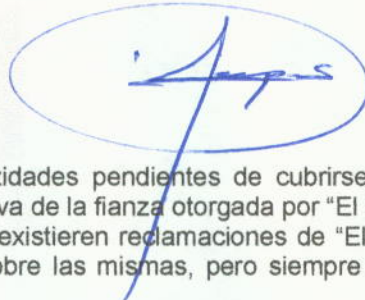 tidades pendientes de cubrirse
va de la fianza otorgada por "El
existieren reclamaciones de "El
obre las mismas, pero siempre